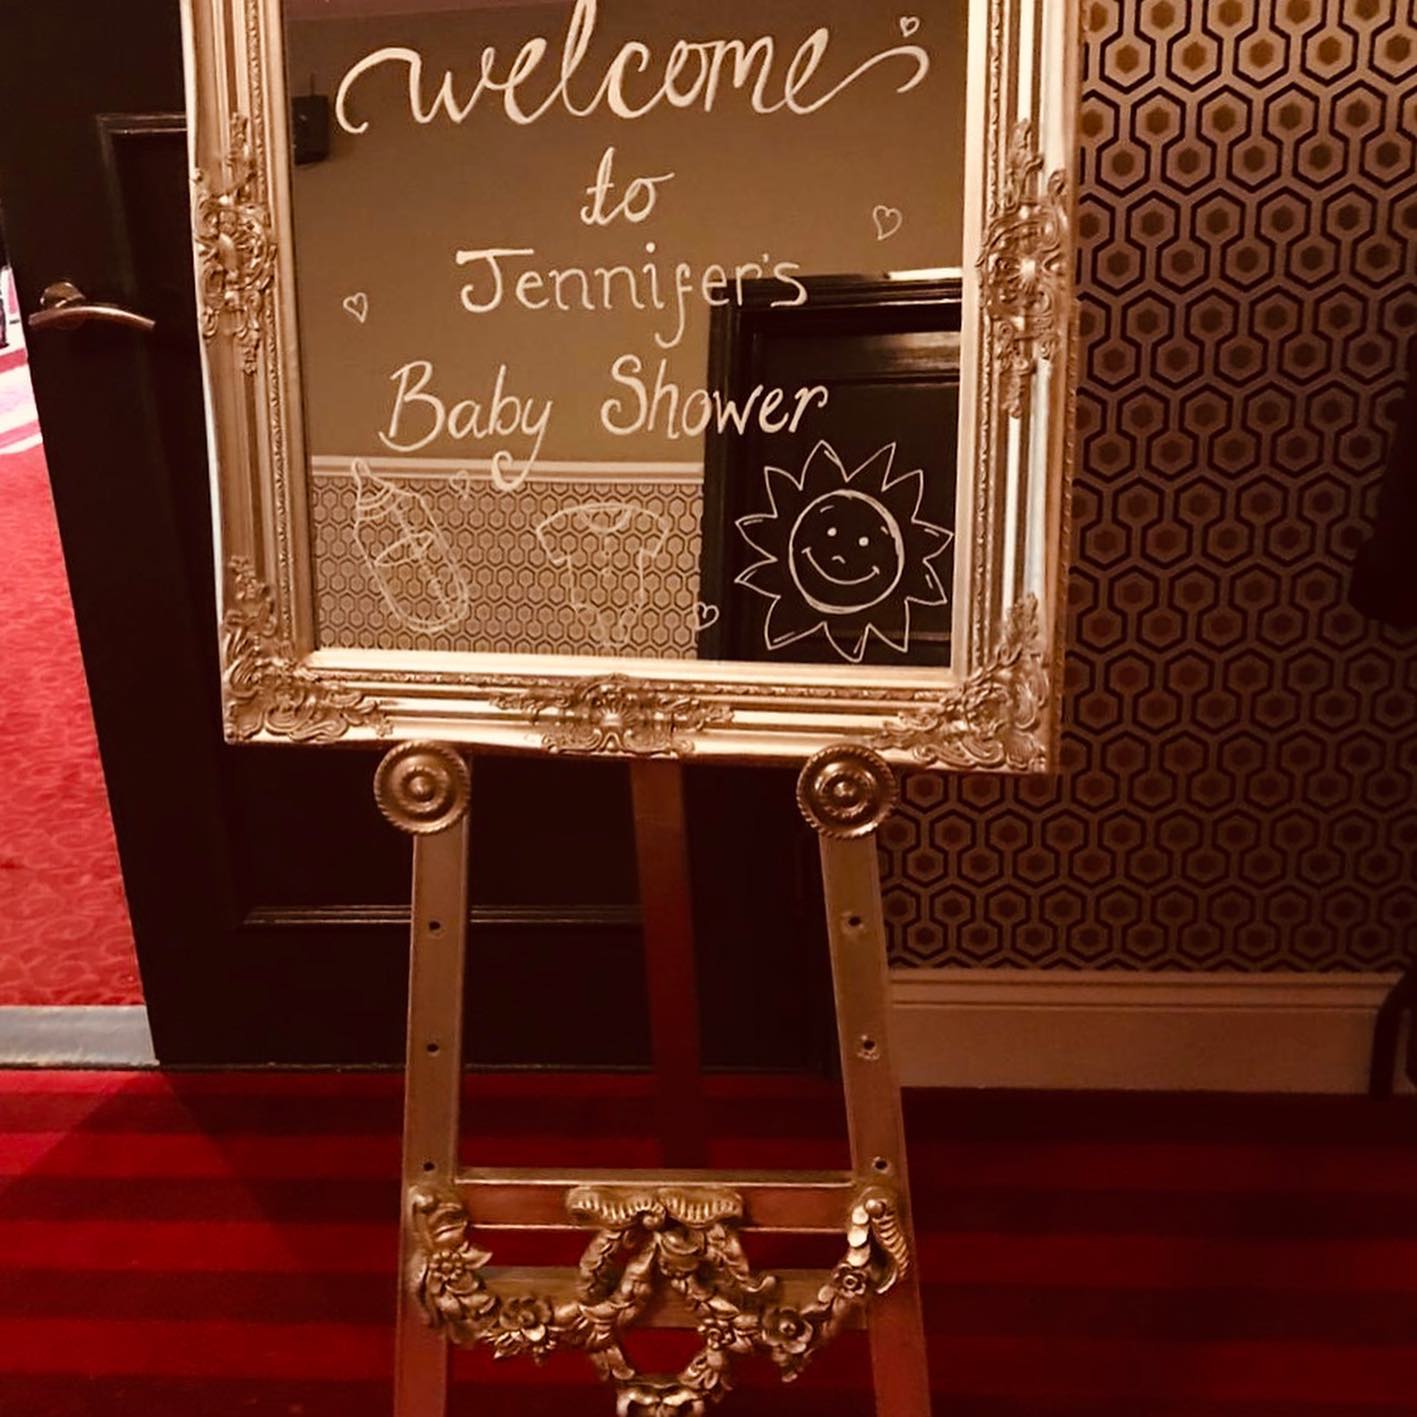 welcome
to
Jennifer's
Baby Shower